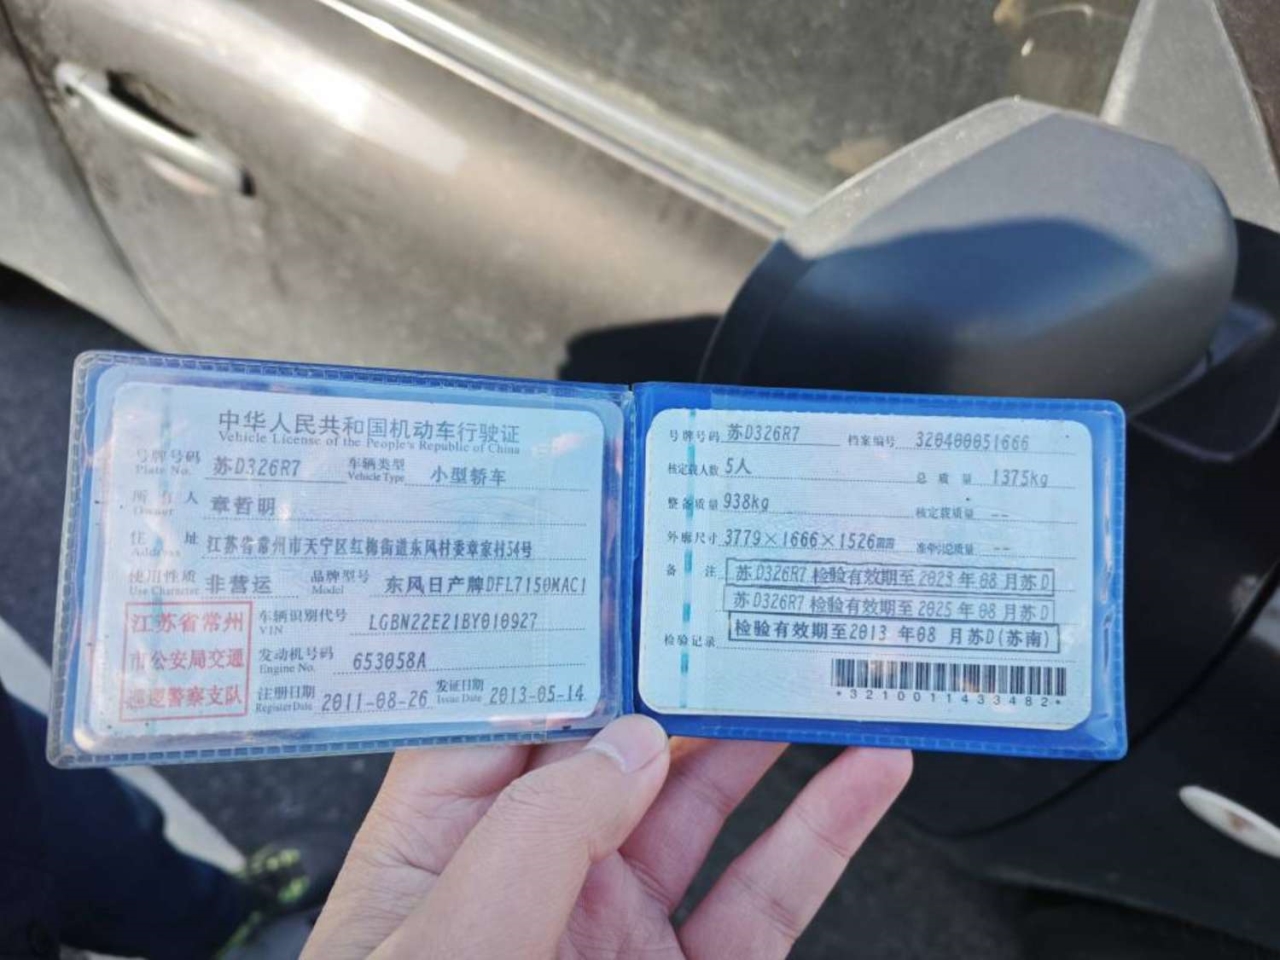 中华人民共和国机动车行驶证
Vehicle License of the People's Republic of China
号牌号码 苏D326R7 车辆类型 小型轿车
Plate No. Vehicle Type
所有人 章哲明
Owner
住址 江苏省常州市天宁区红梅街道东风村委章家村54号
Address
使用性质 非营运 品牌型号 东风日产牌DFL7150MAC1
Use Character Model
江苏省常州
市公安局交通
巡逻警察支队
车辆识别代号 LGBN22E21BY010927
VIN
发动机号码 653058A
Engine No.
注册日期 2011-08-26 发证日期 2013-05-14
Register Date Issue Date
号牌号码 苏D326R7 档案编号 320400051666
核定载人数 5人 总质量 1375kg
整备质量 938kg 核定载质量 --
外廓尺寸 3779×1666×1526mm 准牵引总质量 --
备注 苏D326R7 检验有效期至2023年08月苏D
苏D326R7 检验有效期至2025年08月苏D
检验记录 检验有效期至2013 年08 月苏D(苏南)
*3210011433482*